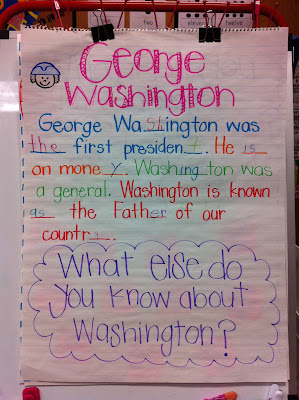 eleven
twelve
two
George
Washington
George Washington was
the first president. He is
on money. Washington was
a general. Washington is known
as the Father of our
country.
What else do
you know about
Washington?